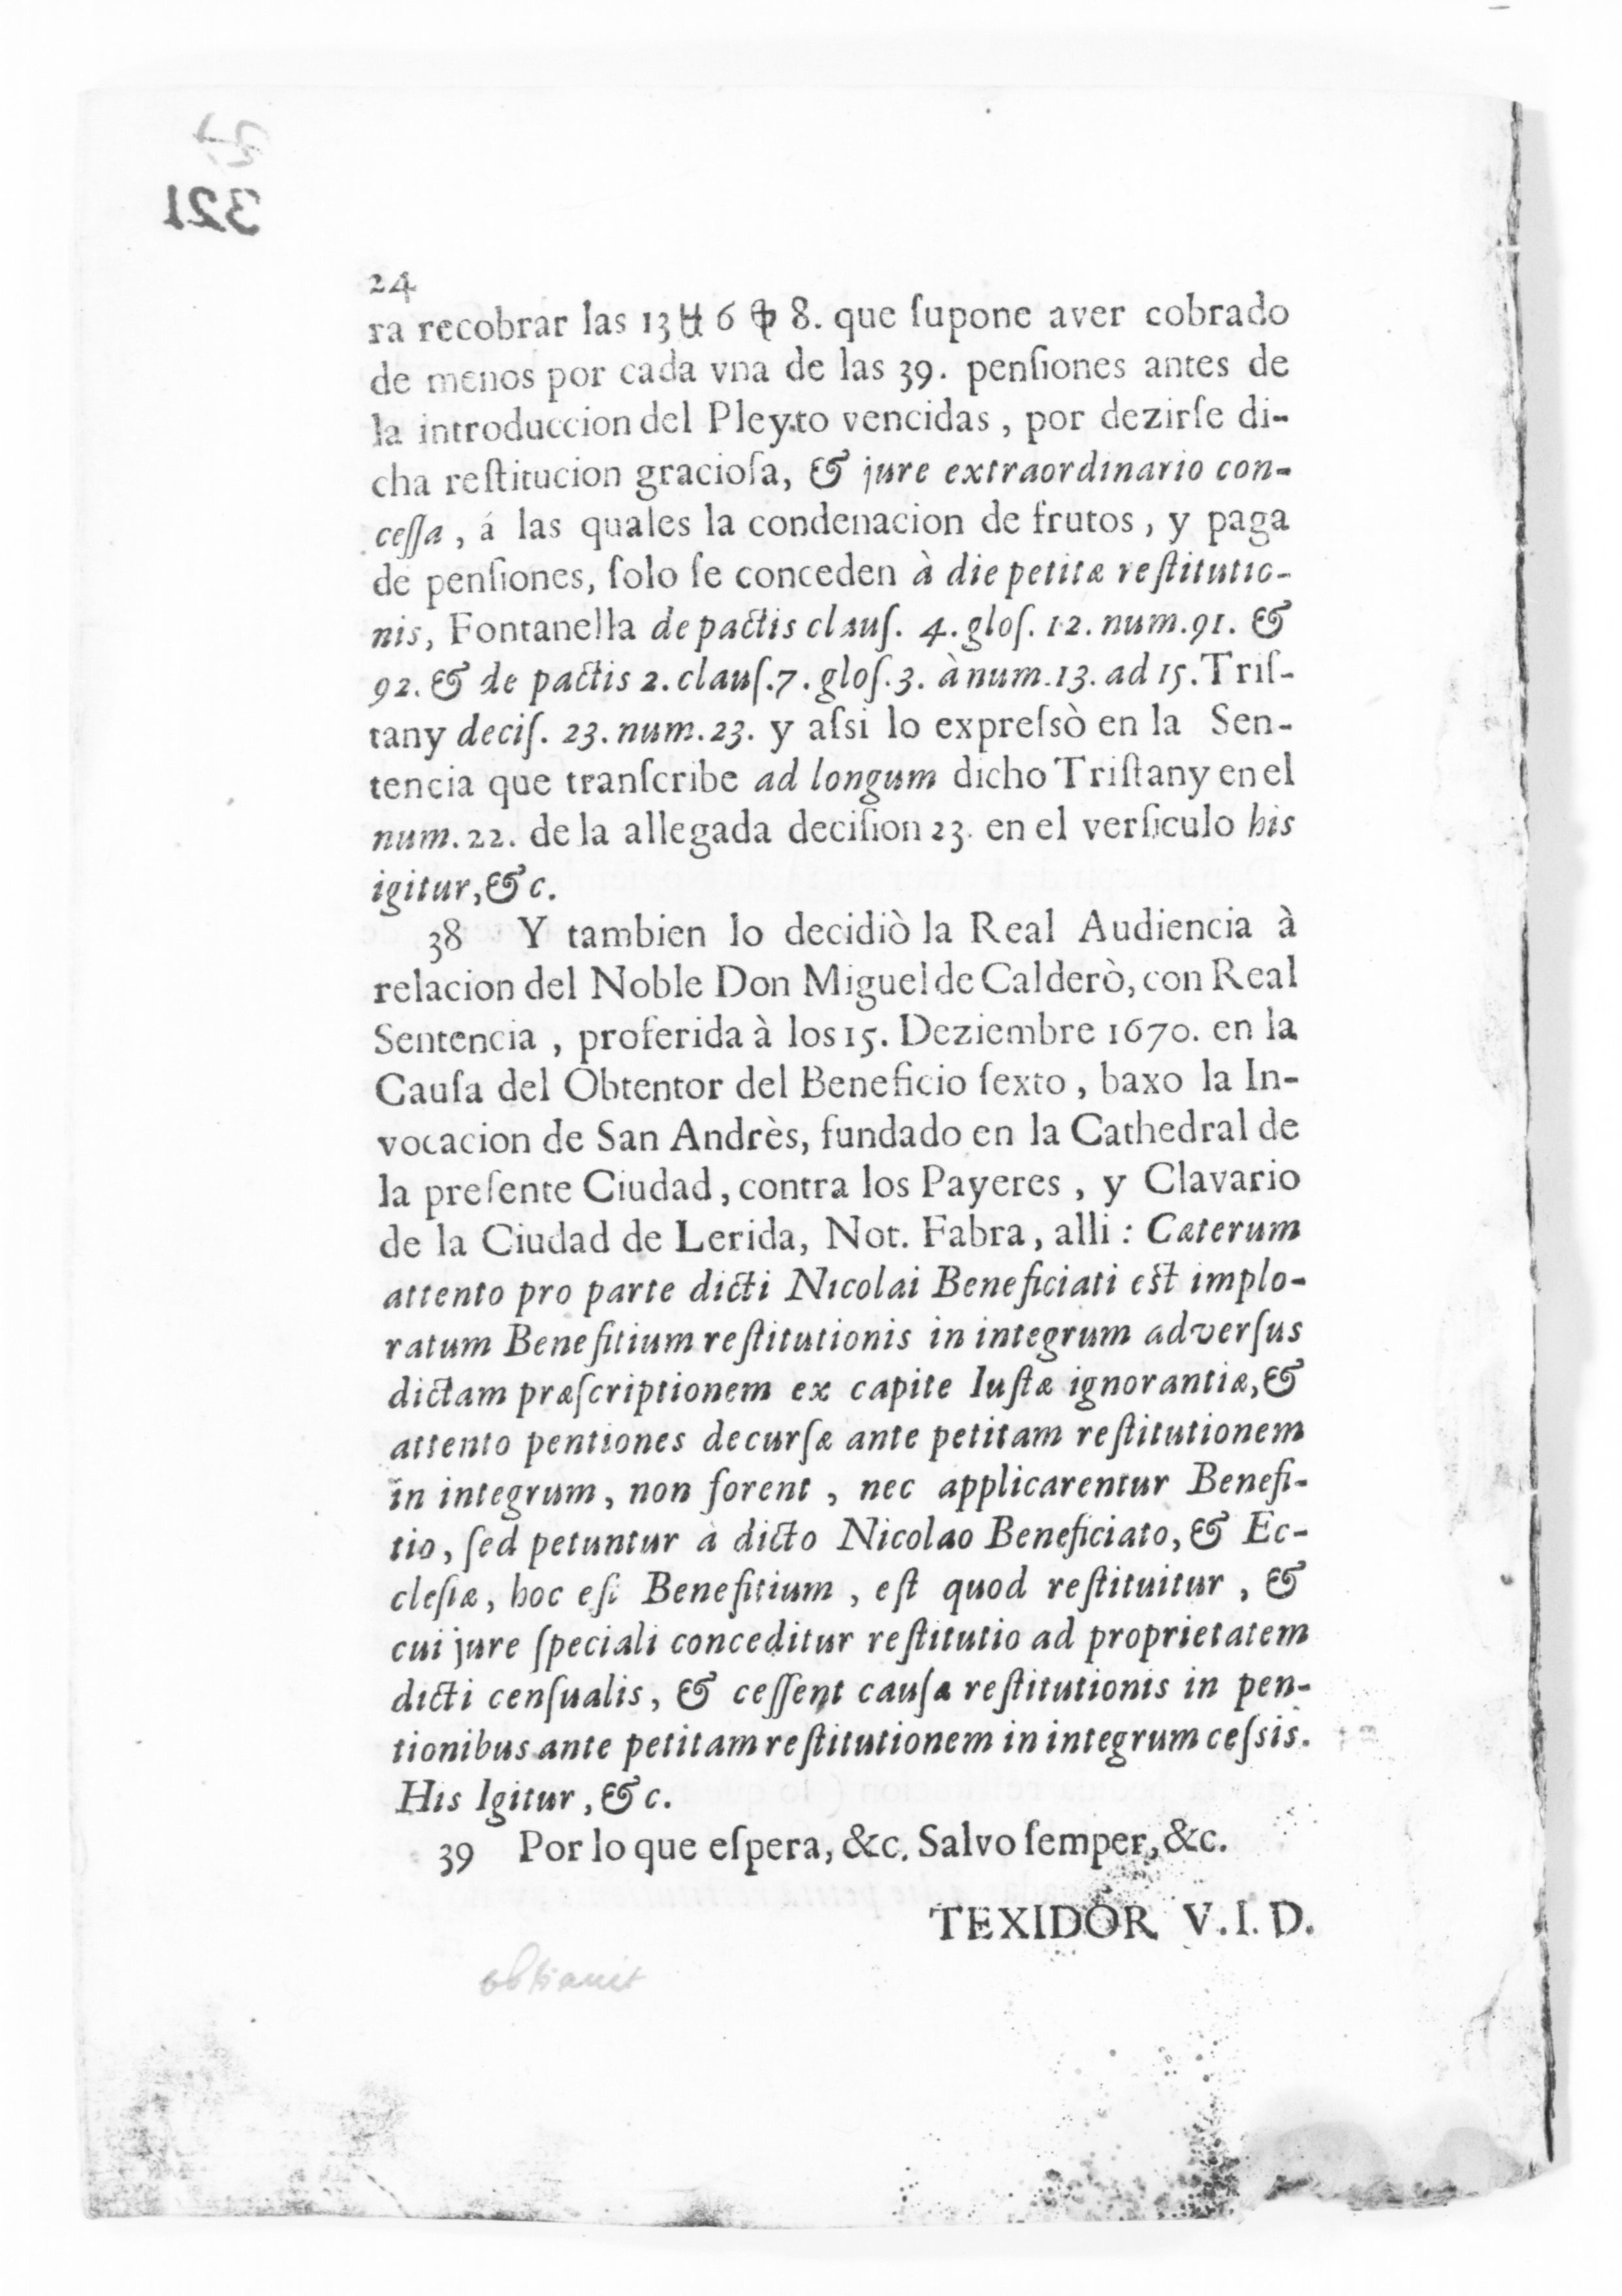 321
24
ra recobrar las 13 ₶ 6 ꝑ 8. que ſupone aver cobrado
de menos por cada vna de las 39. penſiones antes de
la introduccion del Pleyto vencidas, por dezirſe di-
cha reſtitucion gracioſa, & jure extraordinario con-
ceſſa, á las quales la condenacion de frutos, y paga
de penſiones, ſolo ſe conceden à die petitæ reſtitutio-
nis, Fontanella de pactis clauſ. 4. gloſ. 12. num. 91. &
92. & de pactis 2. clauſ. 7. gloſ. 3. à num. 13. ad 15. Triſ-
tany deciſ. 23. num. 23. y aſsi lo expreſsò en la Sen-
tencia que tranſcribe ad longum dicho Triſtany en el
num. 22. de la allegada deciſion 23. en el verſiculo his
igitur, &c.
38 Y tambien lo decidiò la Real Audiencia à
relacion del Noble Don Miguel de Calderò, con Real
Sentencia, proferida à los 15. Deziembre 1670. en la
Cauſa del Obtentor del Beneficio ſexto, baxo la In-
vocacion de San Andrès, fundado en la Cathedral de
la preſente Ciudad, contra los Payeres, y Clavario
de la Ciudad de Lerida, Not. Fabra, alli: Cæterum
attento pro parte dicti Nicolai Beneficiati eſt implo-
ratum Benefitium reſtitutionis in integrum adverſus
dictam præſcriptionem ex capite Iuſtæ ignorantiæ, &
attento pentiones decurſæ ante petitam reſtitutionem
in integrum, non forent, nec applicarentur Benefi-
tio, ſed petuntur à dicto Nicolao Beneficiato, & Ec-
cleſiæ, hoc eſt Benefitium, eſt quod reſtituitur, &
cui jure ſpeciali conceditur reſtitutio ad proprietatem
dicti cenſualis, & ceſſent cauſa reſtitutionis in pen-
tionibus ante petitam reſtitutionem in integrum ceſsis.
His Igitur, &c.
39 Por lo que eſpera, &c. Salvo ſemper, &c.
TEXIDOR V. I. D.